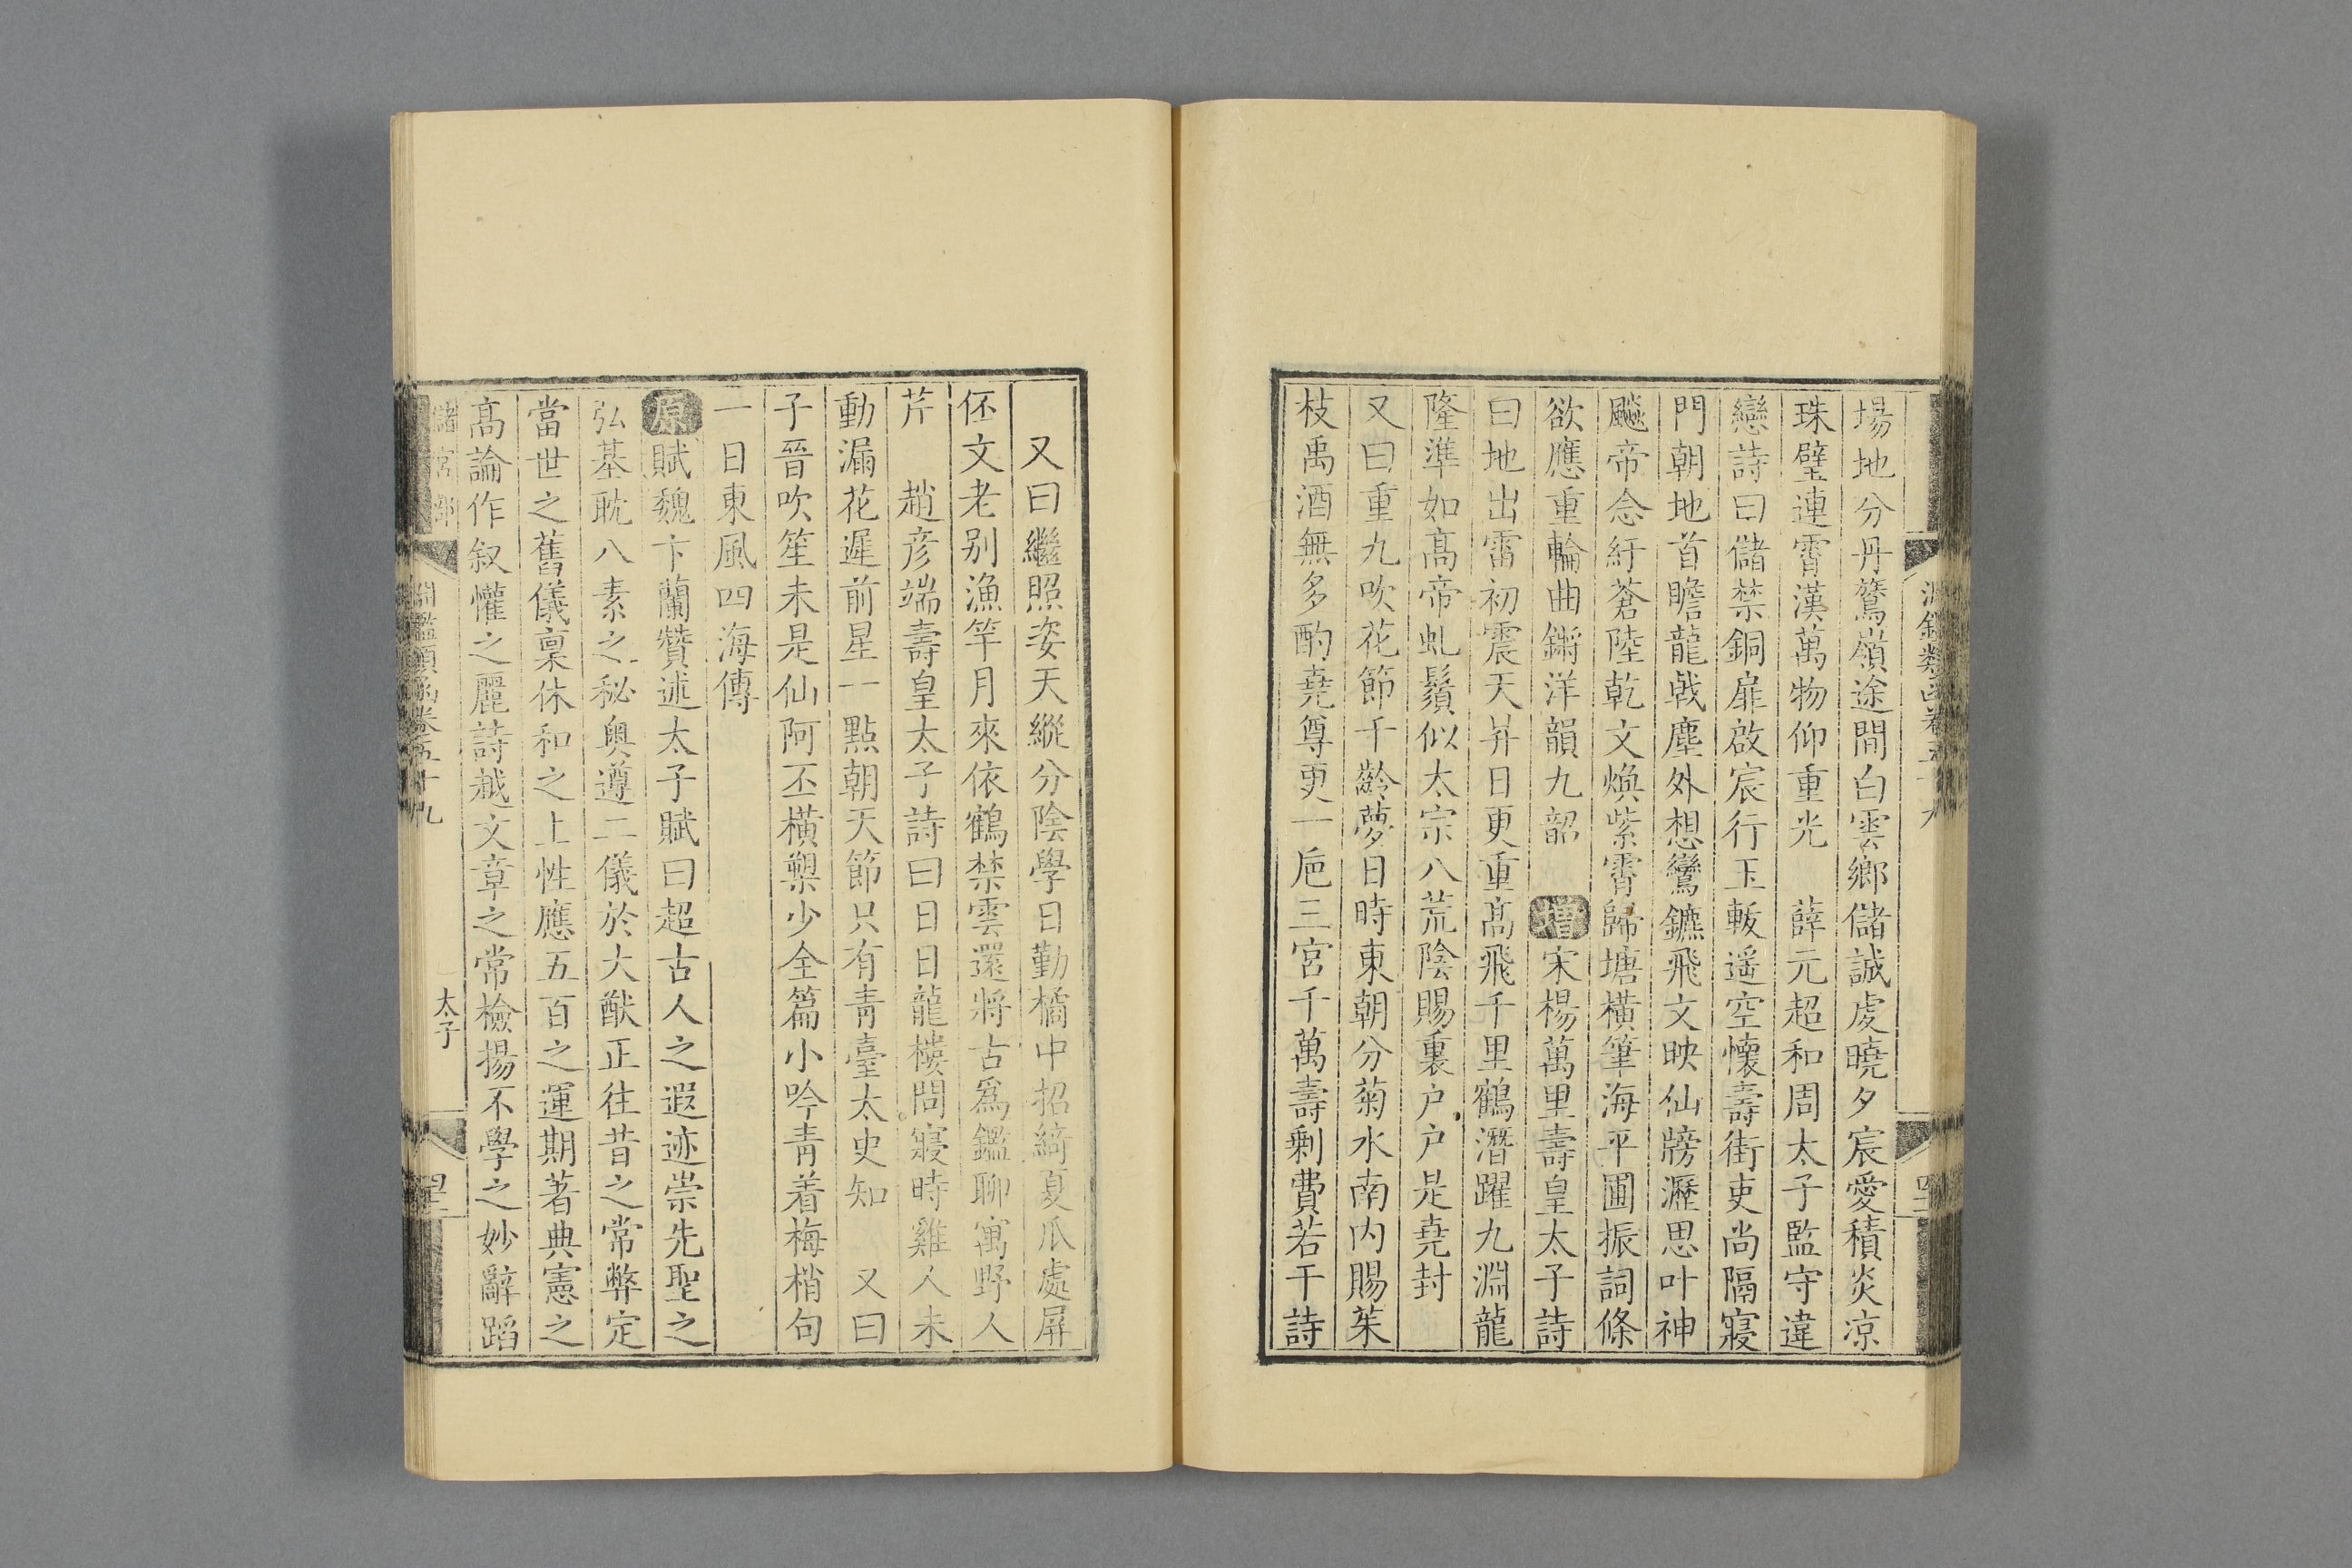 場地分丹鷲嶺途間白雲鄉儲誠虔曉夕宸愛積炎凉
珠璧連霄漢萬物仰重光　薛元超和周太子監守違
戀詩曰儲禁銅扉啟宸行玉軷遥空懷壽街吏尚隔寢
門朝地首瞻龍戟塵外想鸞鑣飛文映仙牓瀝思叶神
飈帝念紆蒼陸乾文煥紫霄歸塘橫筆海平圃振詞條
欲應重輪曲鏘洋韻九韶　增宋楊萬里壽皇太子詩
曰地出雷初震天昇日更重髙飛千里鶴潛躍九淵龍
隆準如髙帝虬鬚似太宗八荒陰賜裏户户是堯封
又曰重九吹花節千齡夢日時東朝分菊水南内賜茱
枝禹酒無多酌堯尊更一巵三宮千萬壽剩費若干詩
淵鑑類函卷五十九
又曰繼照姿天縱分陰學日勤橘中招綺夏瓜處屏
伾文老别漁竿月來依鶴禁雲還將古爲鑑聊寓野人
芹　趙彦端壽皇太子詩曰日日龍樓問寢時雞人未
動漏花遲前星一點朝天節只有青臺太史知　又曰
子晉吹笙未是仙阿丕橫槊少全篇小吟青着梅梢句
一日東風四海傳
原賦魏卞蘭贊述太子賦曰超古人之遐迹崇先聖之
弘基耽八素之秘奥遵二儀於大猷正往昔之常弊定
當世之舊儀稟休和之上性應五百之運期著典憲之
髙論作叙懽之麗詩越文章之常檢揚不學之妙辭蹈
儲宮部
淵鑑類函卷五十九
太子